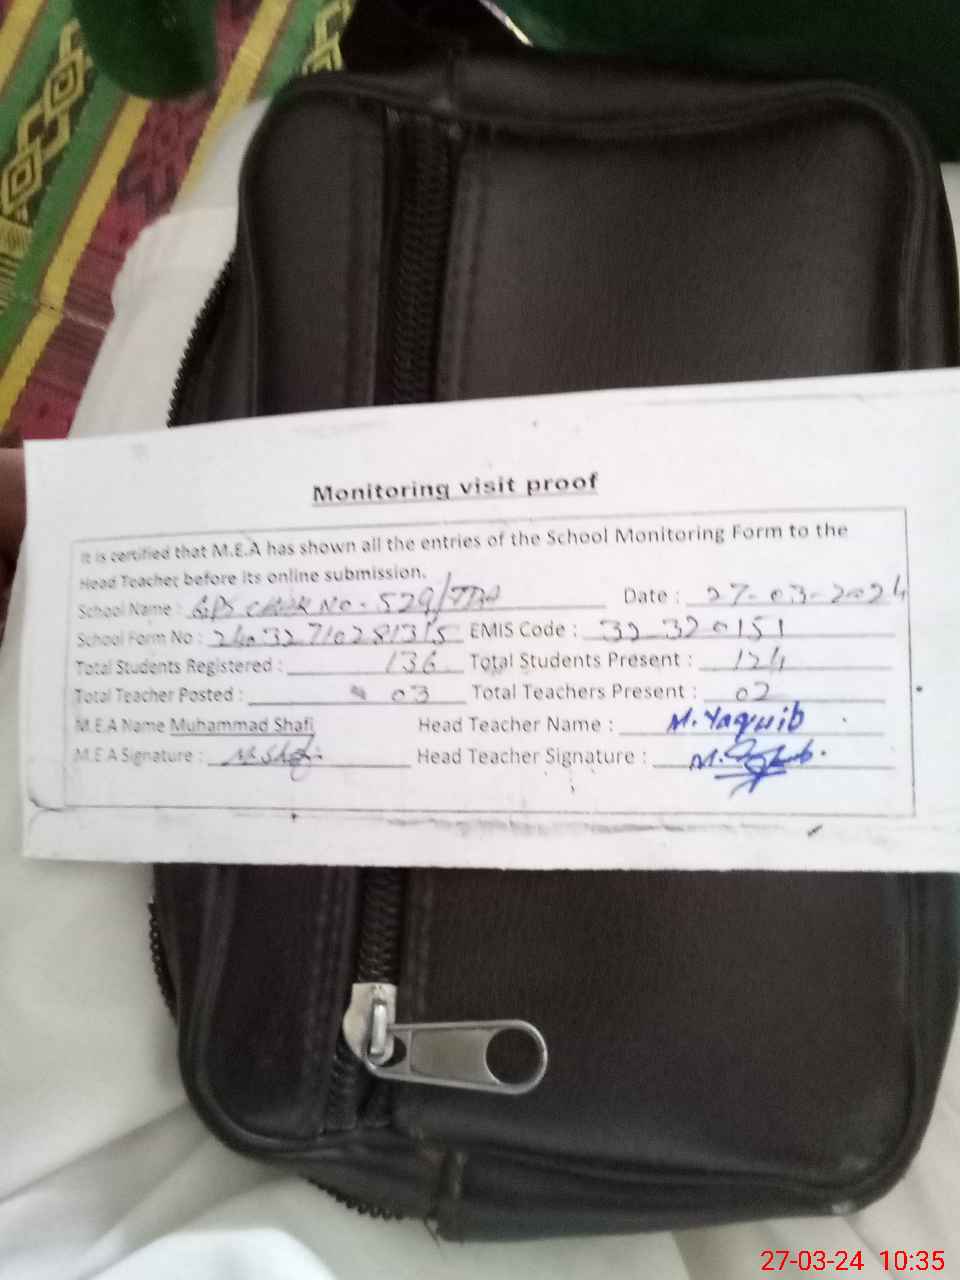 Monitoring visit proof
It is certified that M.E.A has shown all the entries of the School Monitoring Form to the
Head Teacher before its online submission.
School Name : GPS CHAK NO. 529/TDA Date : 27-03-2024
School Form No : EMIS Code : 32320151
Total Students Registered : 136 Total Students Present : 124
Total Teacher Posted : 03 Total Teachers Present : 02
M.E.A Name Muhammad Shafi Head Teacher Name : M. Yaquib
M.E A Signature : M.Shafi Head Teacher Signature :
27-03-24 10:35